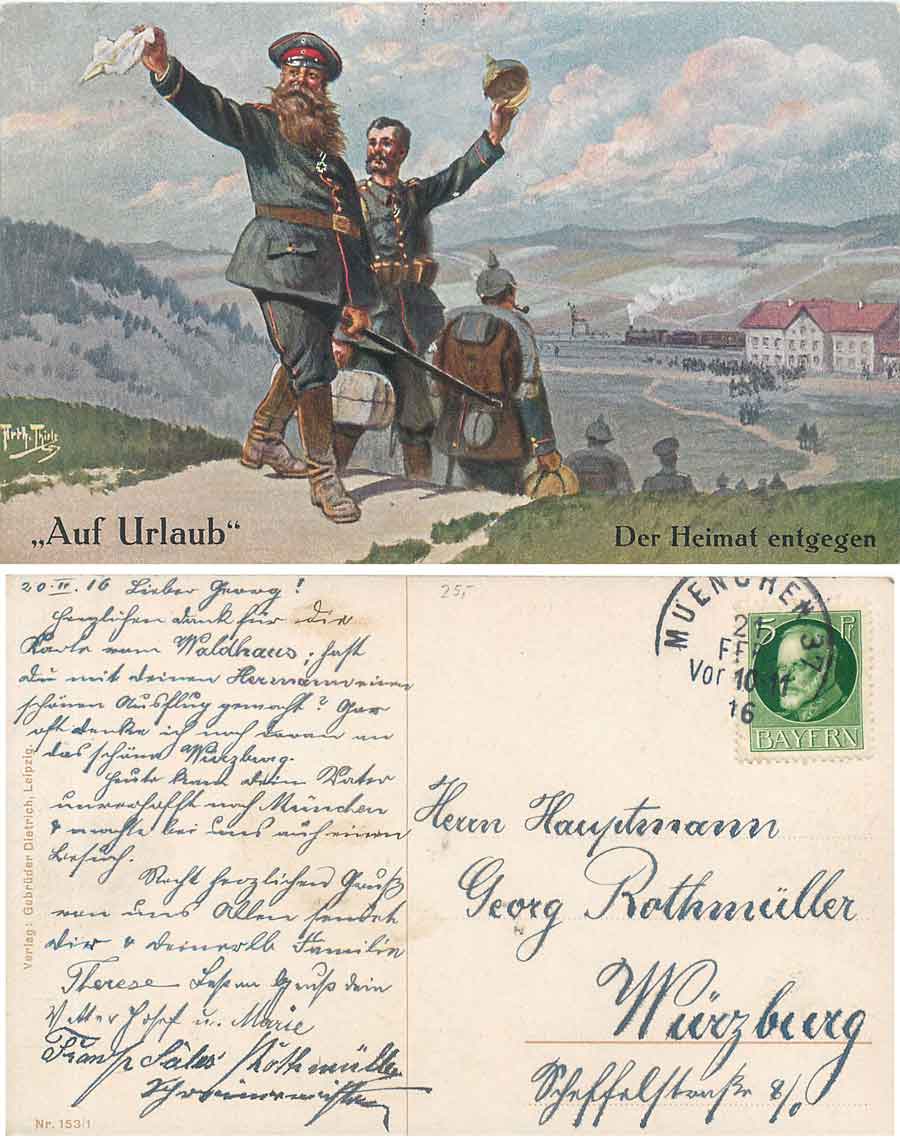 Arth. Thiele
„Auf Urlaub“
Der Heimat entgegen
20. II. 16 Lieber Georg!
Herzlichen Dank für die
Karte vom Waldhaus; hast
Du mit deinen Hermann einen
schönen Ausflug gemacht? Gar
oft denke ich noch daran an
das schöne Würzburg.
Heute kam dein Vater
unverhofft nach München
& machte bei uns auch einen
Besuch.
Recht herzlichen Gruß
von uns Allen sendet
Dir & deiner lb Familie
Therese Besten Gruß dein
Vetter Josef u. Marie
Franz Sales Rothmüller
Verlag: Gebrüder Dietrich, Leipzig.
Nr. 153/1
25,-
MUENCHEN 37
21
FEB
Vor 10-11
16
5 Pf
BAYERN
Herrn Hauptmann
Georg Rothmüller
Würzburg
Scheffelstraße 8/0